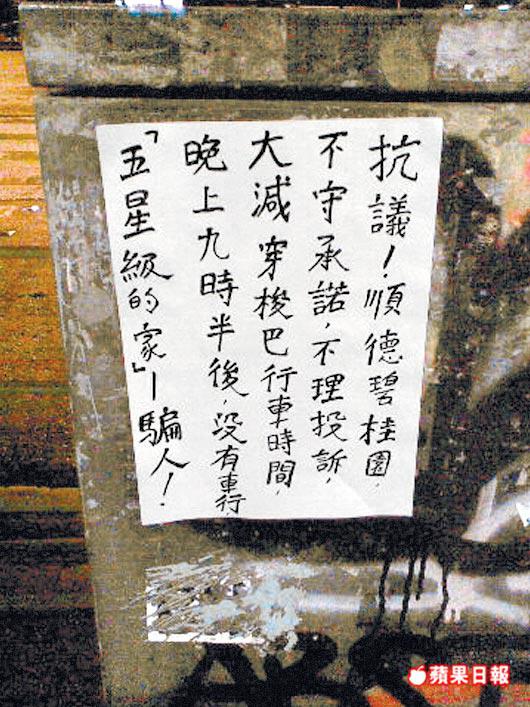 抗議！順德碧桂園，
不守承諾，不理投訴，
大減穿梭巴行車時間，
晚上九時半後，没有車行，
「五星級的家」—騙人！
蘋果日報